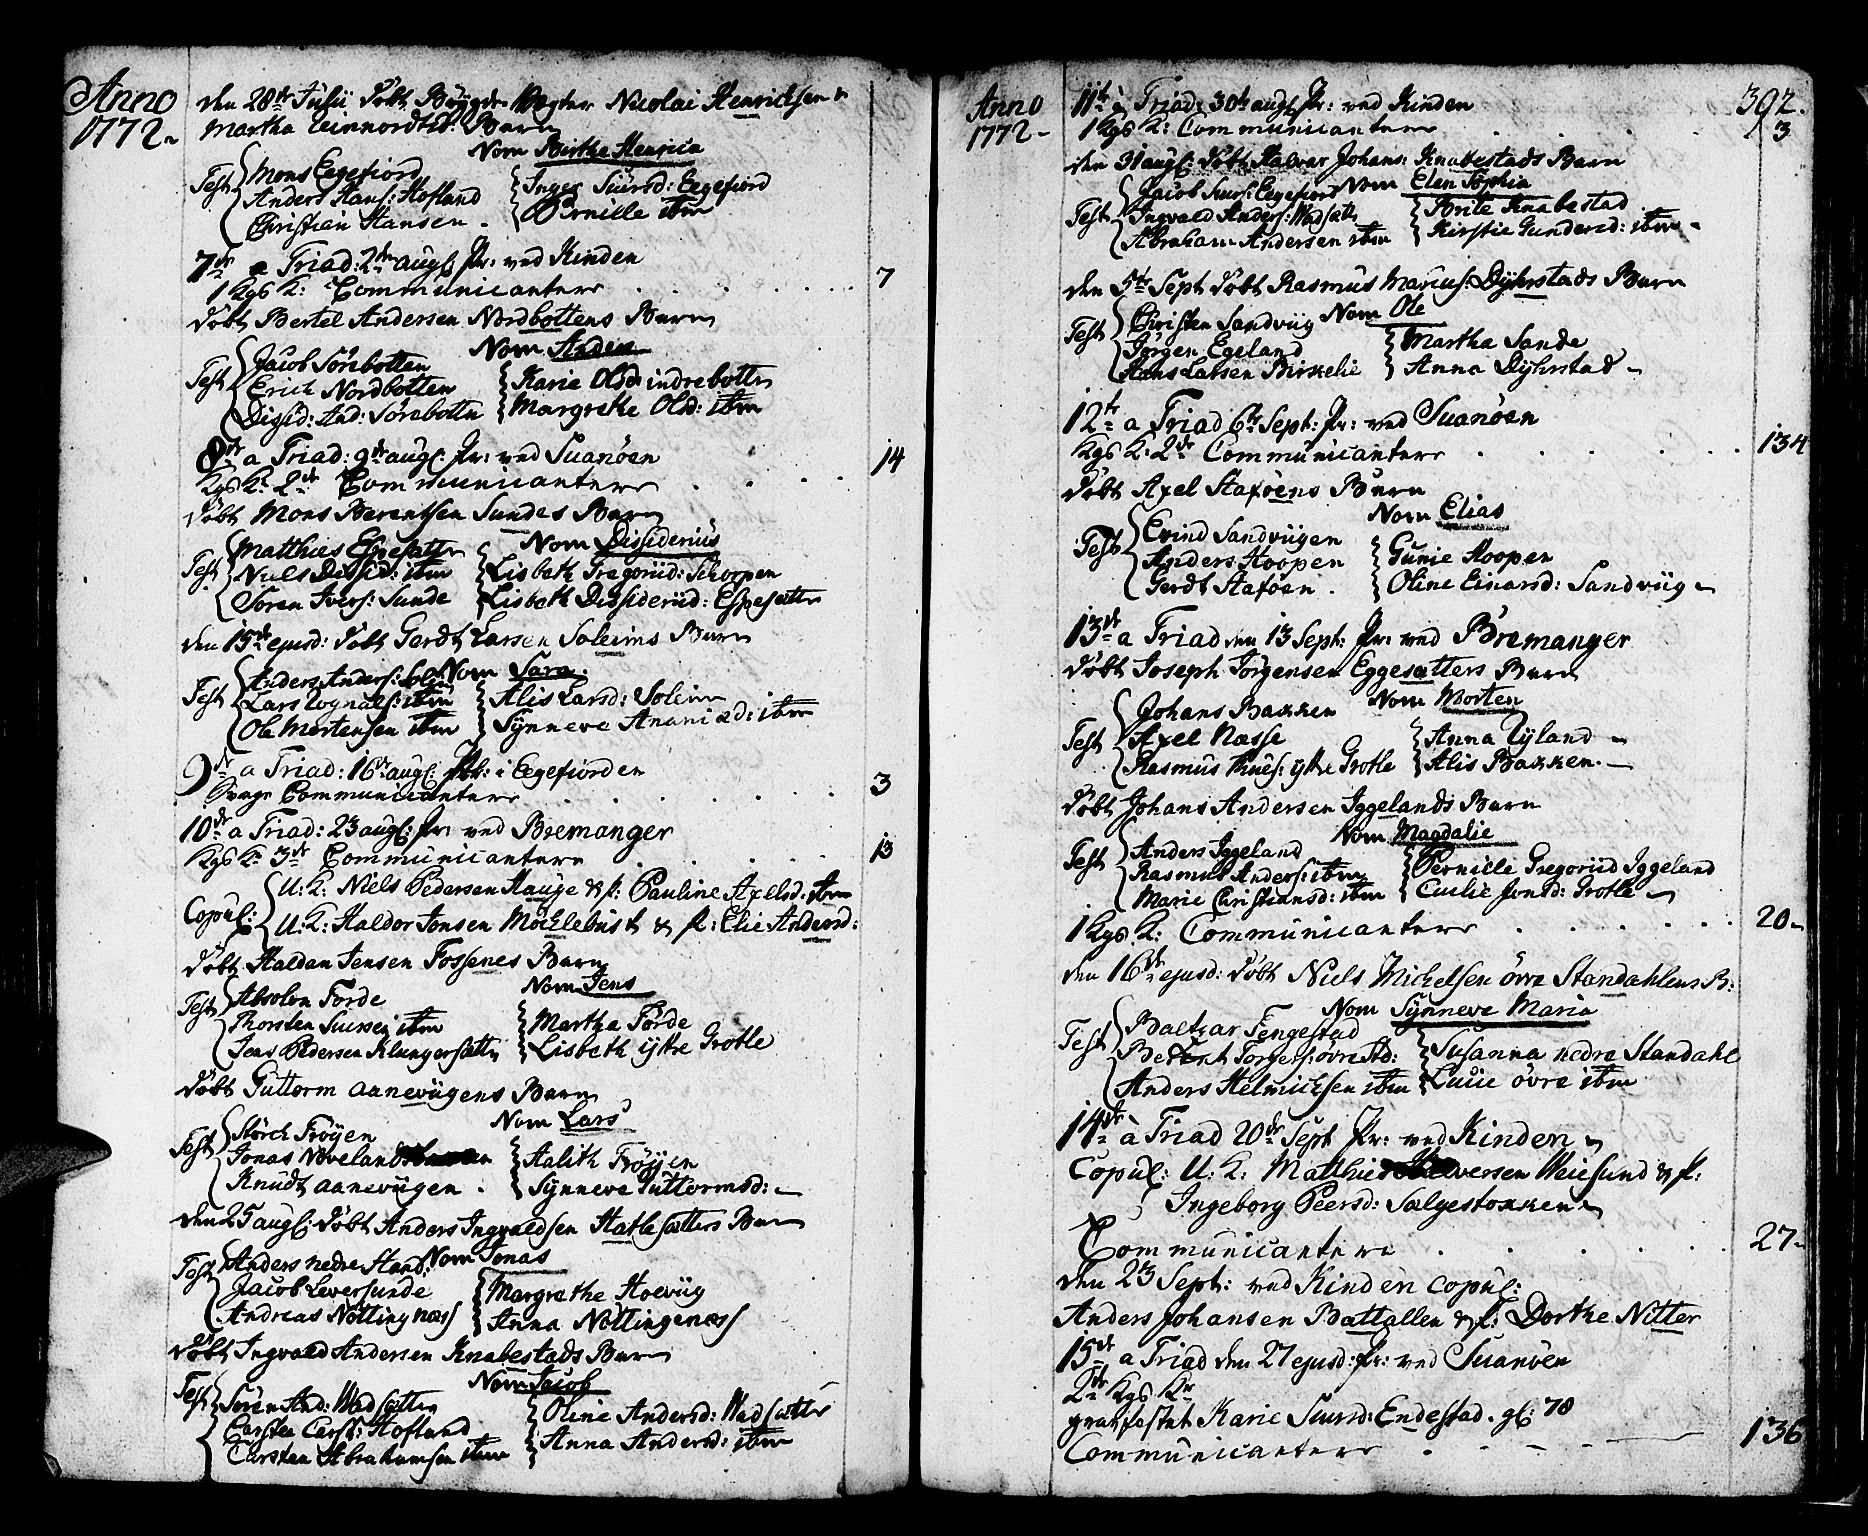 Anno
1772
den 28de Julii döbt Böygde Wægter Nicolai Henrichsen &
Martha Leinnordtsd: Barn
Nom Birtha Henrica
Test Mons Eegefiord
Anders Hans: Hofland
Christian Hansen
Inger Siursd: Eegefiord
Pernille ibm
7de a Triad: 2de augl Pr: ved Kinden
1 Kgs K: Communicantere 7
döbt Bertel Andersen Nordbottens Barn
Nom Anders
Test Jacob Sörebotten
Erich Nordbotten
Disid: And: Sörebotten
Karie Olsd: indrebotten
Margrethe Olsd: ibm
8de a Triad: 9de augl: Pr: ved Suanöen
Kgs K: 2de Communicantere 14
döbt Mons Berentsen Sundes Barn
Nom Dissiderius
Test Matthies Espesætter
Niels Dissid: ibm
Sören Ivers: Sunde
Lisbeth Gregoriid: Schorpen
Lisbeth Dissideriid: Espesætter
den 15de ejusd: döbt Gerdt Larsen Soleims Barn
Nom Sara
Test Anders Anders: Solei
Lars Rognals: ibm
Ole Mortensen ibm
Alis Larsd: Soleim
Synneve Ananiæd: ibm
9de a Triad: 16de augl: Pr: i Eegefiorden
Svage Communicantere 3
10de a Triad: 23 augl: Pr: ved Bremanger
Kgs K: 3de Communicantere 13
Copul: U: K: Niels Pedersen Hauge & p: Pauline Axelsd: ibm
U: K: Haldor Jonsen Mochlebust & p: Elie Andersd:
döbt Haldan Jensen Fossenes Barn
Nom Jens
Test Absolon Förde
Thorsten Siursen ibm
Jens Pedersen Klungersætter
Martha Förde
Lisbeth yttre Grotle
döbt Guttorm aanevügens Barn
Nom Lars
Test Störch Fröyen
Jonas Noveland
Knudt aanevügen
Aalith Fröyen
Synneve Guttormsd:
den 25 augl: döbt Anders Ingvaldsen Hatlesætters Barn
Nom Jonas
Test Anders nedre Stand:
Jacob Leversunde
Andreas Nöttingnæss
Margrethe Hoevüg
Anna Nöttingenæss
döbt Ingvald Andersen Knabestads Barn
Nom Jacob
Test Sören And: Wadsætter
Carsten Carst: Hofland
Carsten Abrahamsen ibm
Oline Andersd: Wadsætter
Anna Andersd: ibm
Anno
1772
392.
11te a Triad: 30te augl: Pr: ved Kinden
1 Kgs K: Communicantere 3
den 31 augl: döbt Halvar Johans: Knabestads Barn
Nom Elen Sophia
Test Jacob Siurs: Eegefiord
Ingvald Anders: Wadsætt
Abraham Andersen ibm
Dorite Knabestad
Kirstie Gundersd: ibm
den 5te Sept döbt Rasmus Marcus: Dyhrstads Barn
Nom Ole
Test Christen Sandvüg
Jörgen Egeland
Hans Larsen Birkelie
Martha Sande
Anna Dyhrstad
12te a Triad 6te Sept: Pr: ved Suanöen
Kgs K: 2de Communicantere 134
döbt Axel Staföens Barn
Nom Elias
Test Evind Sandvügen
Anders Hoopen
Gerdt Staföen
Gunie Hoopen
Oline Einarsd: Sandvüg
13de a Triad den 13 Sept: Pr: ved Bremanger
döbt Joseph Jörgensen Eggesætters Barn
Nom Morten
Test Johans Bakken
Axel Næsse
Rasmus Knus: yttre Grotle
Anna Ryland
Alis Bakken
döbt Johans Andersen Iggelands Barn
Nom Magdalie
Test Anders Iggeland
Rasmus Anders: ibm
Marie Christiansd: ibm
Pernille Gregoriid Iggeland
Cicilie Jonsd: Grotle
1 Kgs K: Communicantere 20
den 16de ejusd: döbt Niels Michelsen övre Standahlens B:
Nom Synneve Maria
Test Baltzar Fengestad
Berent Torgers: övre Std:
Anders Helmichsen ibm
Susanna nedre Standahl
Lucie övre ibm
14de a Triad 20de Sept Pr: ved Kinden
Copul: U: K: Matthies Halversen Weiesund & p:
Ingeborg Peersd: Salgestokken
Communicantere 27
den 23 Sept: ved Kinden copul:
Anders Johansen Battallen & p: Dorthe Nitter
15de a Triad den 27 ejusd: Pr: ved Suanöen
2de Kgs Kr
graffæstet Karie Siursd: Endestad. gl: 78
Communicantere 136